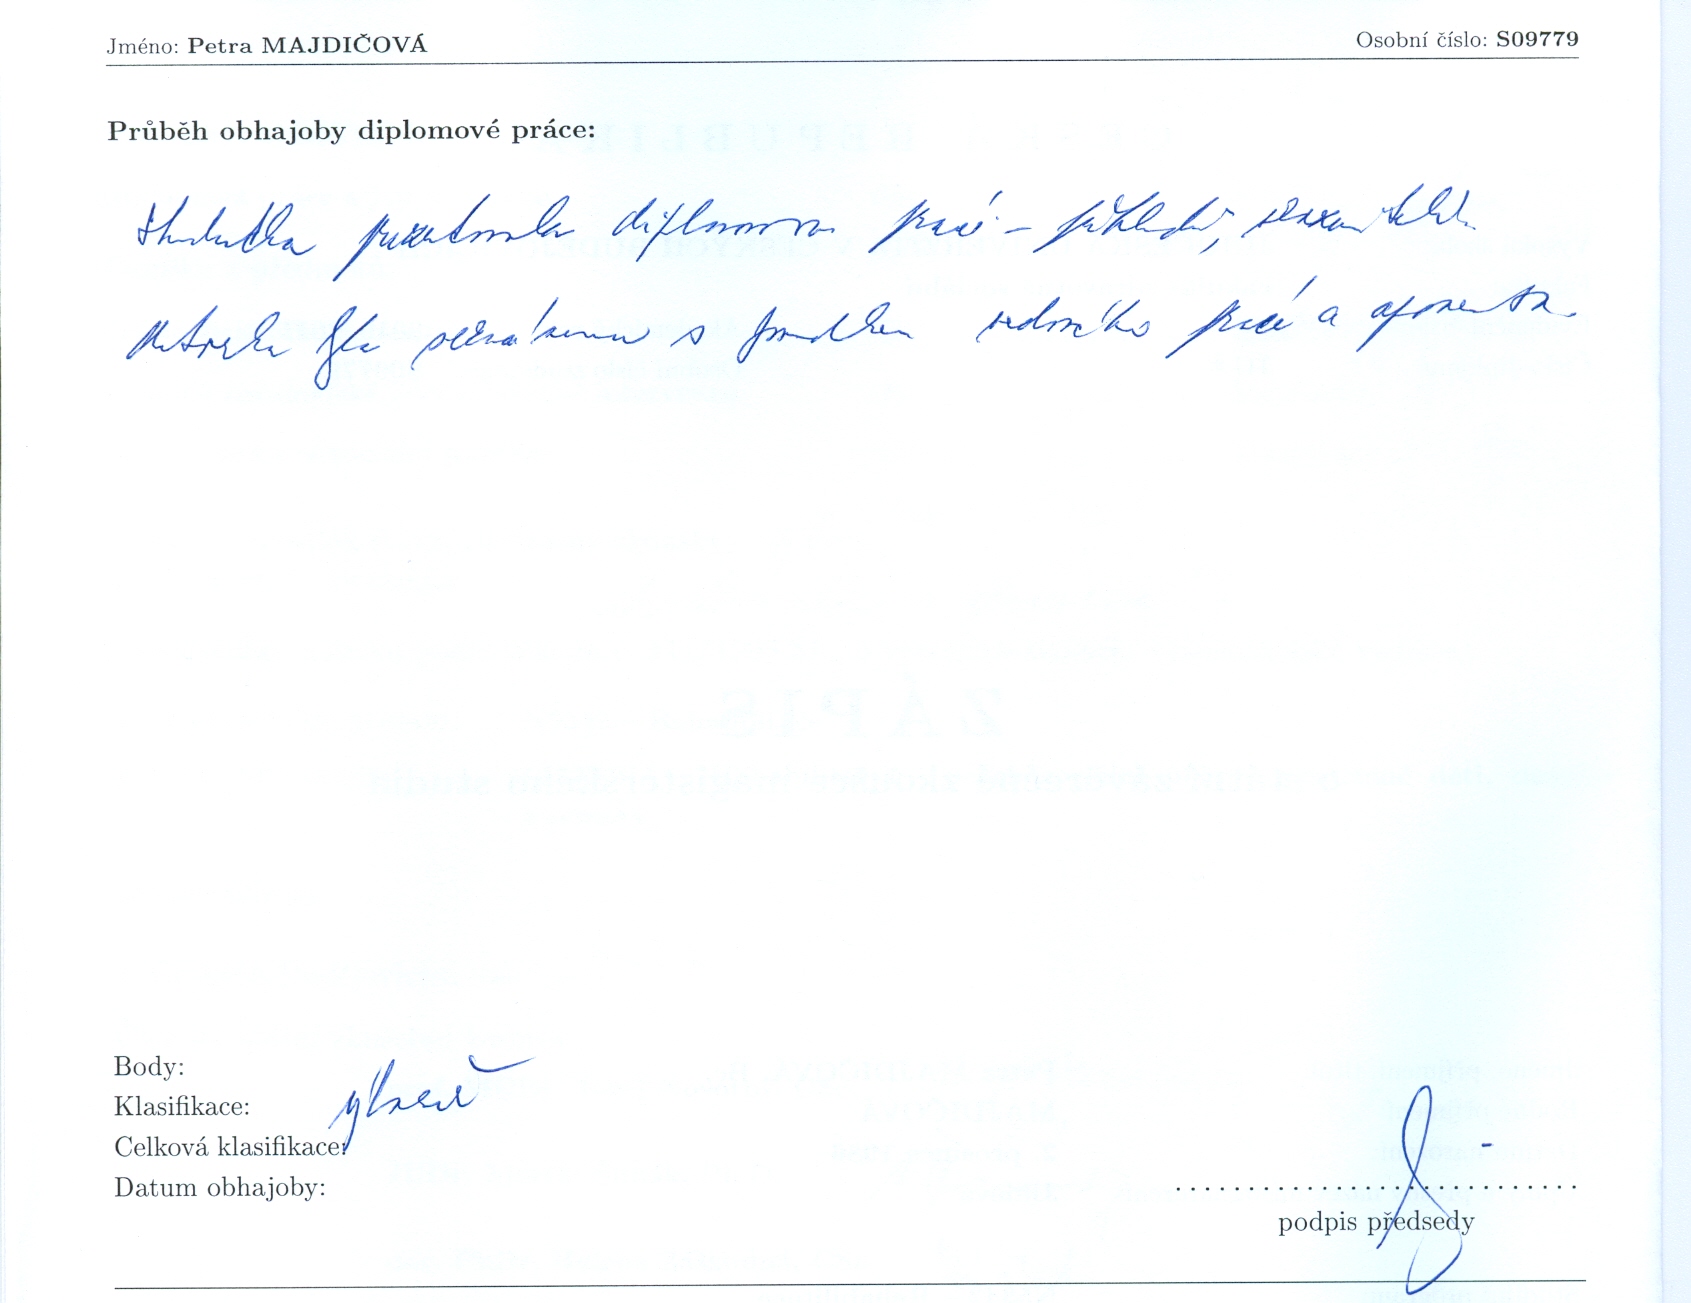 Jméno: Petra MAJDIČOVÁ Osobní číslo: S09779
Průběh obhajoby diplomové práce:
Studentka prezentovala diplomovou práci – přehledně, srozumitelně.
byla seznámena s posudkem vedoucího práce a oponenta.
Body:
Klasifikace: výborně
Celková klasifikace:
Datum obhajoby:
podpis předsedy